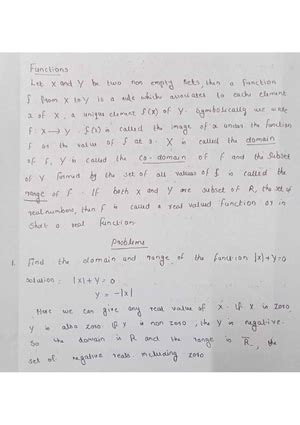 Functions
Let X and Y be two non empty sets then a function
f from X to Y is a rule which associates to each element
x of X, a unique element f(x) of Y. Symbolically we write
f: X → Y. f(x) is called the image of x under the function
f or the value of f at x. X is called the domain
of f, Y is called the co-domain of f and the subset
of Y formed by the set of all values of f is called the
range of f. If both X and Y are subset of R, the set of
real numbers, then f is called a real valued function or in
short a real function
Problems
1. Find the domain and range of the function |x|+y=0
Solution: |x|+y=0
y = -|x|
Here we can give any real value of x. If x is zero
y is also zero. If x is non zero, the y is negative.
So the domain is R and the range is R_, the
set of negative reals including zero